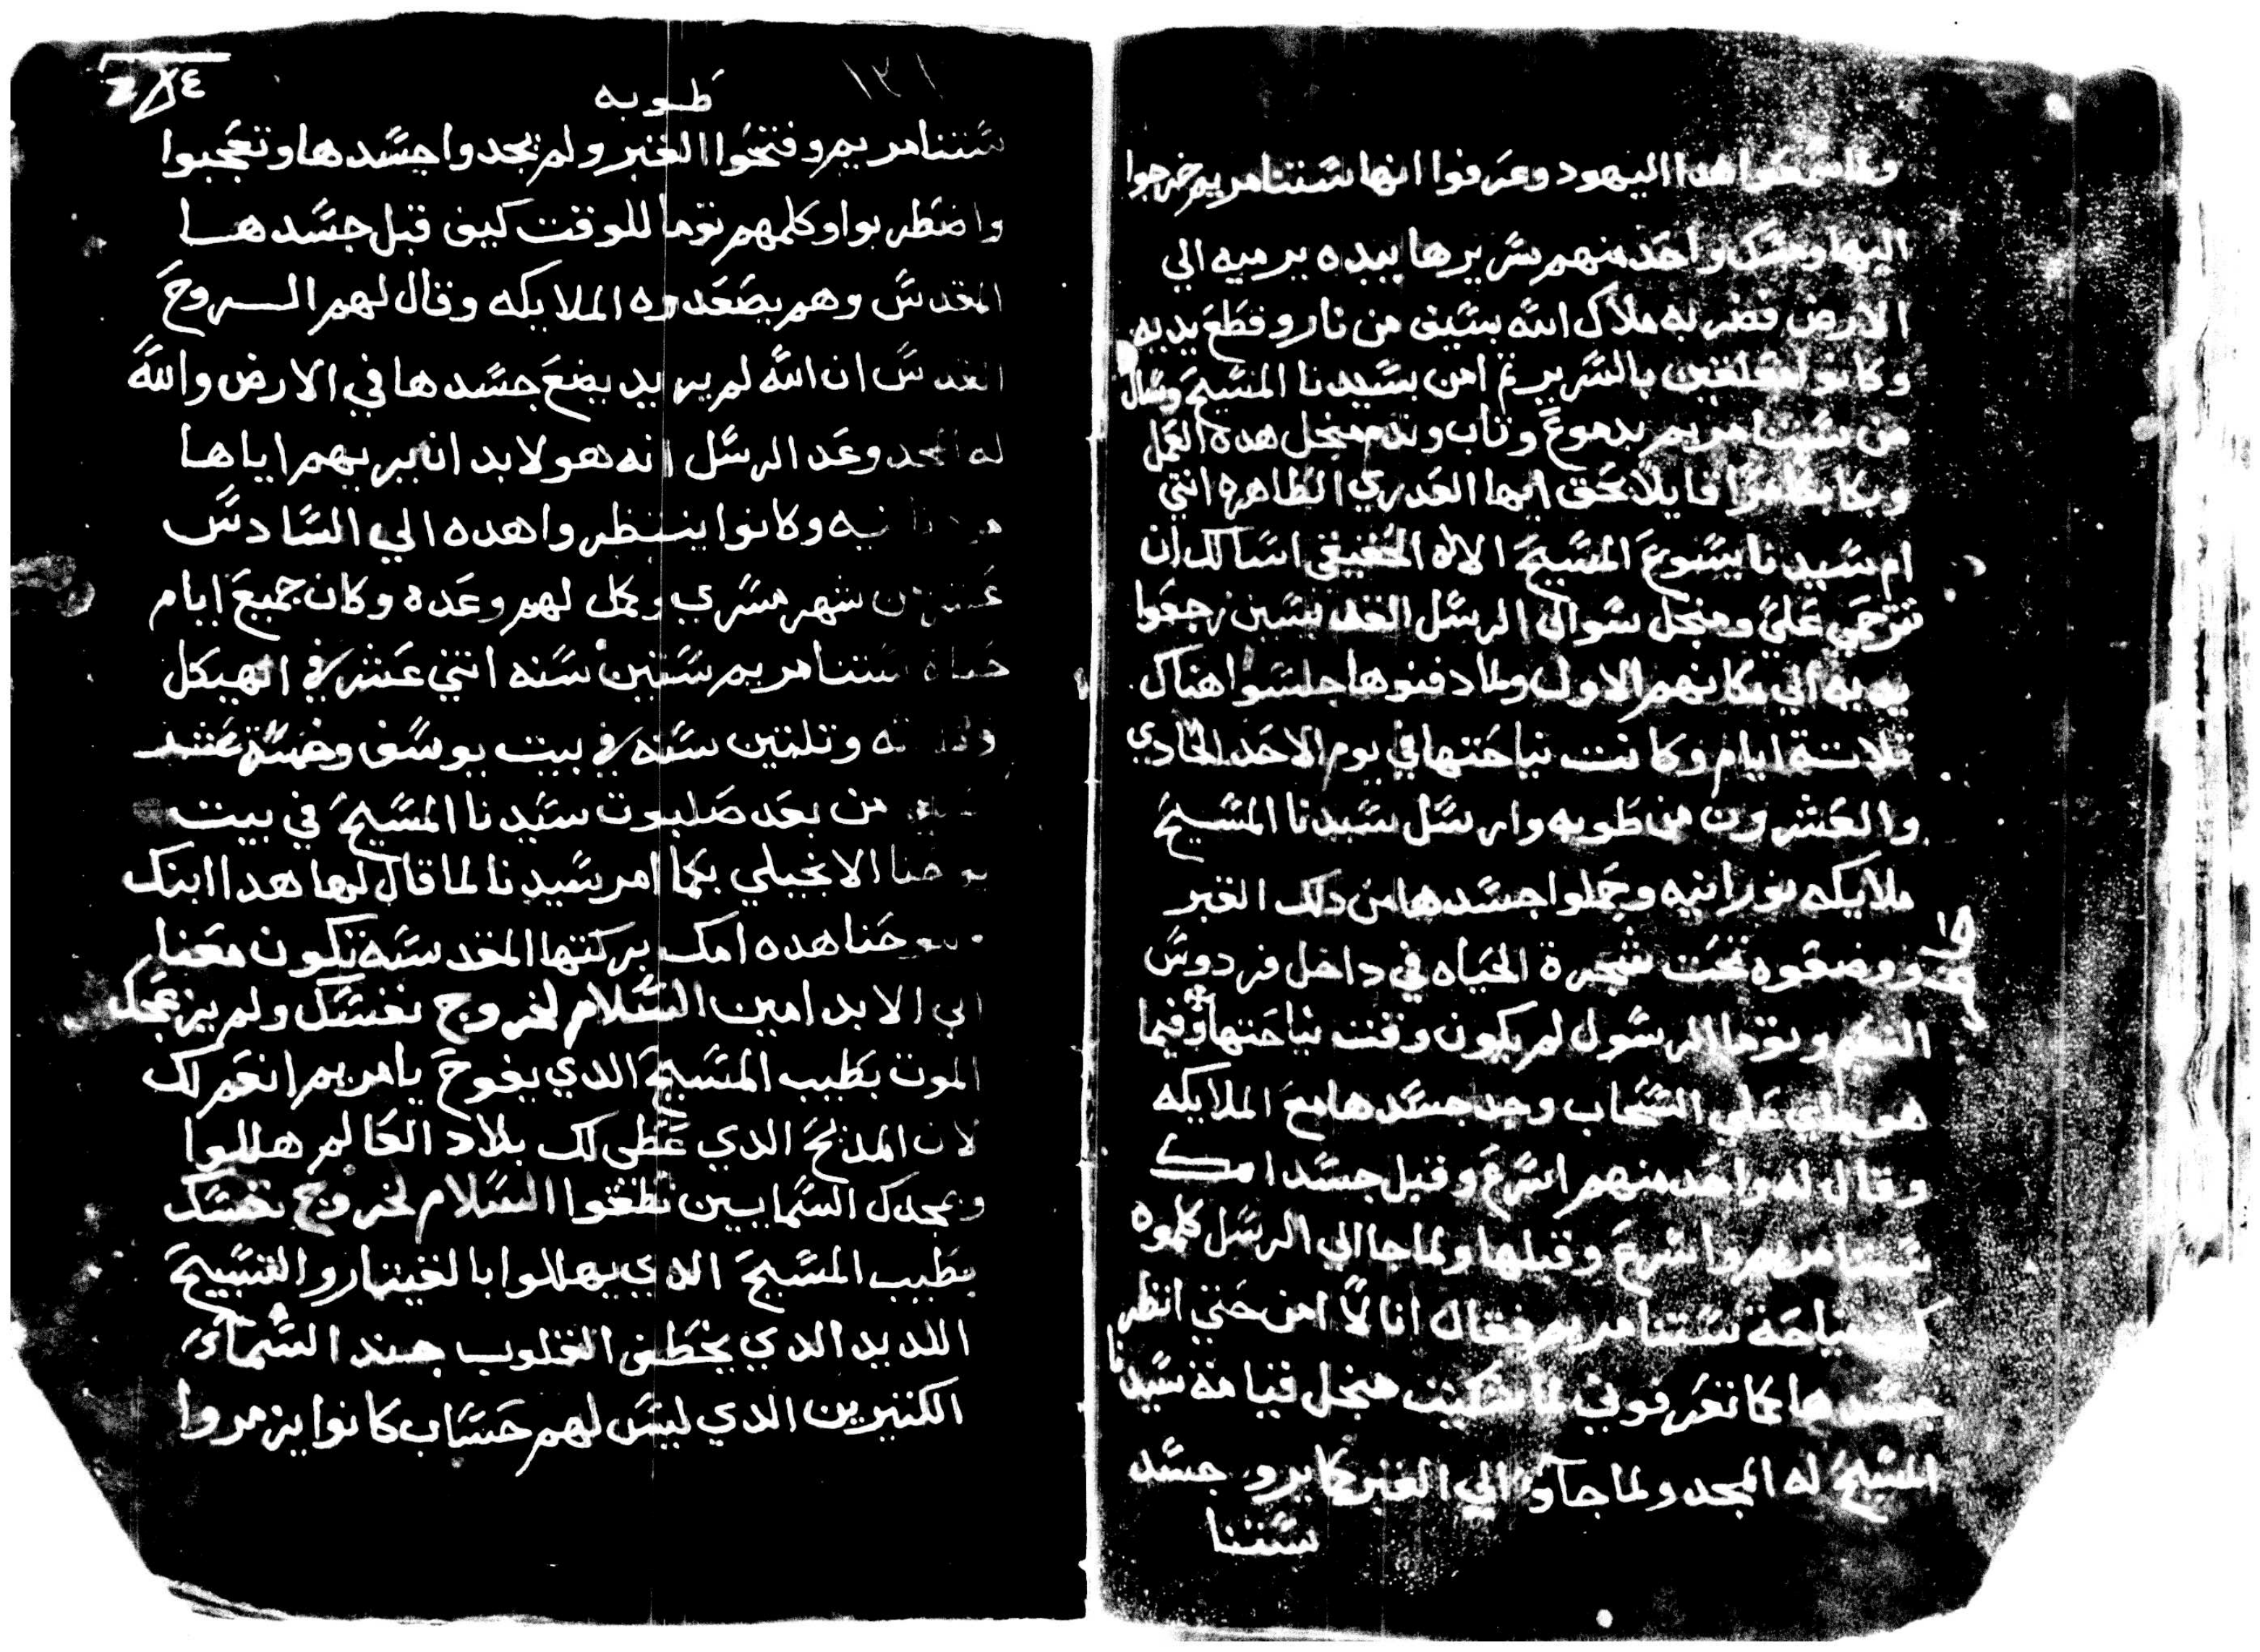 ولما سمعوا هدا اليهود وعرفوا انها ستنا مريم خرجوا
اليها ومسك واحد منهم سريرها بيده يرميه الي
الارض فضربه ملاك الله بسيف من نار وقطع يديه
وكانوا متعلقين بالسرير تم امن بسيدنا المسيح وسال
من ستنا مريم بدموع وتاب وندم منجل هده العمل
وبكا بكا مرا قايلا بحق ايها العدري الطاهره انتي
ام سيدنا يسوع المسيح الاله الحقيقي اسالك ان
تترحمي علي ومنجل سوال الرسل القديسين رجعوا
يديه الي مكانهم الاول ولما دفنوها جلسوا هناك
تلاتة ايام وكانت نياحتها في يوم الاحد الحادي
والعشرون من طوبه وارسل سيدنا المسيح
ملايكه نورانيه وحملوا جسدها من دلك القبر
ووضعوه تحت شجرة الحياه في داخل فردوس
النعيم وتوما الرسول لم يكون وقت نياحتها وفيما
هو جاي علي السحاب وجد جسدها مع الملايكه
وقال له واحد منهم اسرع وقبل جسد امك
ستنا مريم واسرع وقبلها ولما جا الي الرسل كلموه
كيف نياحة ستنا مريم فقال انا لا امن حتي انظر
جسدها كما تعرفوني لما شكيت منجل قيامة سيدنا
المسيح له المجد ولما جآوا الي القبر كما يرو جسد
ستنا
١٢١
طوبه
ستنا مريم وفتحوا القبر ولم يجدوا جسدها وتعجبوا
واضطربوا وكلمهم توما للوقت كيف قبل جسدها
المقدس وهم يصعدوه الملايكه وقال لهم الروح
القدس ان الله لم يريد يضع جسدها في الارض والله
له المجد وعد الرسل انه هو لابد ان يريهم اياها
تانيه وكانوا ينتظروا هده الي السادس
عشر من شهر مسري وكمل لهم وعده وكان جميع ايام
حياة ستنا مريم ستين سنه اتني عشر في الهيكل
وتلتين سنه في بيت يوسف وخمسة عشر
من بعد صلبوت سيدنا المسيح في بيت
يوحنا الانجيلي بكما امر سيدنا لما قال لها هدا ابنك
ويوحنا هده امك بركتها المقدسه تكون معنا
الي الابد امين السلام لخروج نفسك ولم يزعجك
الموت بطيب المسيح الدي يفوح يا مريم انعم لك
لان المذبح الدي عطي لك بلاد العالم هللوا
وبمجدك السمايين نطقوا السلام لخروج نفسك
بطيب المسيح الدي يهللوا بالقيتار والتسبيح
اللديد الدي يخطف القلوب جند السماي
الكتيرين الدي ليس لهم حساب كانوا يزمروا